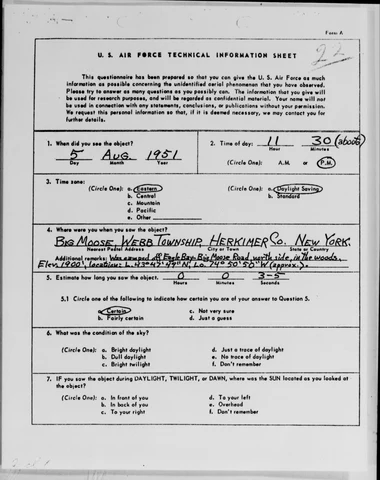 Form A
22
U. S. AIR FORCE TECHNICAL INFORMATION SHEET
This questionnaire has been prepared so that you can give the U. S. Air Force as much
information as possible concerning the unidentified aerial phenomenon that you have observed.
Please try to answer as many questions as you possibly can. The information that you give will
be used for research purposes, and will be regarded as confidential material. Your name will not
be used in connection with any statements, conclusions, or publications without your permission.
We request this personal information so that, if it is deemed necessary, we may contact you for
further details.
1. When did you see the object?
5 Aug. 1951
Day Month Year
2. Time of day: 11 30 (about)
Hour Minutes
(Circle One): A.M. or P.M.
3. Time zone:
(Circle One): a. Eastern
b. Central
c. Mountain
d. Pacific
e. Other
(Circle One): a. Daylight Saving
b. Standard
4. Where were you when you saw the object?
BIG MOOSE, WEBB TOWNSHIP, HERKIMER Co. NEW YORK.
Nearest Postal Address City or Town State or Country
Additional remarks: Was camped at Eagle Bay-Big Moose Road, north side, in the woods.
Elev. 1900', location: L. 43° 49' N, Lo. 74° 50' 50" W (approx.).
5. Estimate how long you saw the object. 0 0 3-5
Hours Minutes Seconds
5.1 Circle one of the following to indicate how certain you are of your answer to Question 5.
a. Certain
b. Fairly certain
c. Not very sure
d. Just a guess
6. What was the condition of the sky?
(Circle One): a. Bright daylight
b. Dull daylight
c. Bright twilight
d. Just a trace of daylight
e. No trace of daylight
f. Don't remember
7. IF you saw the object during DAYLIGHT, TWILIGHT, or DAWN, where was the SUN located as you looked at
the object?
(Circle One): a. In front of you
b. In back of you
c. To your right
d. To your left
e. Overhead
f. Don't remember